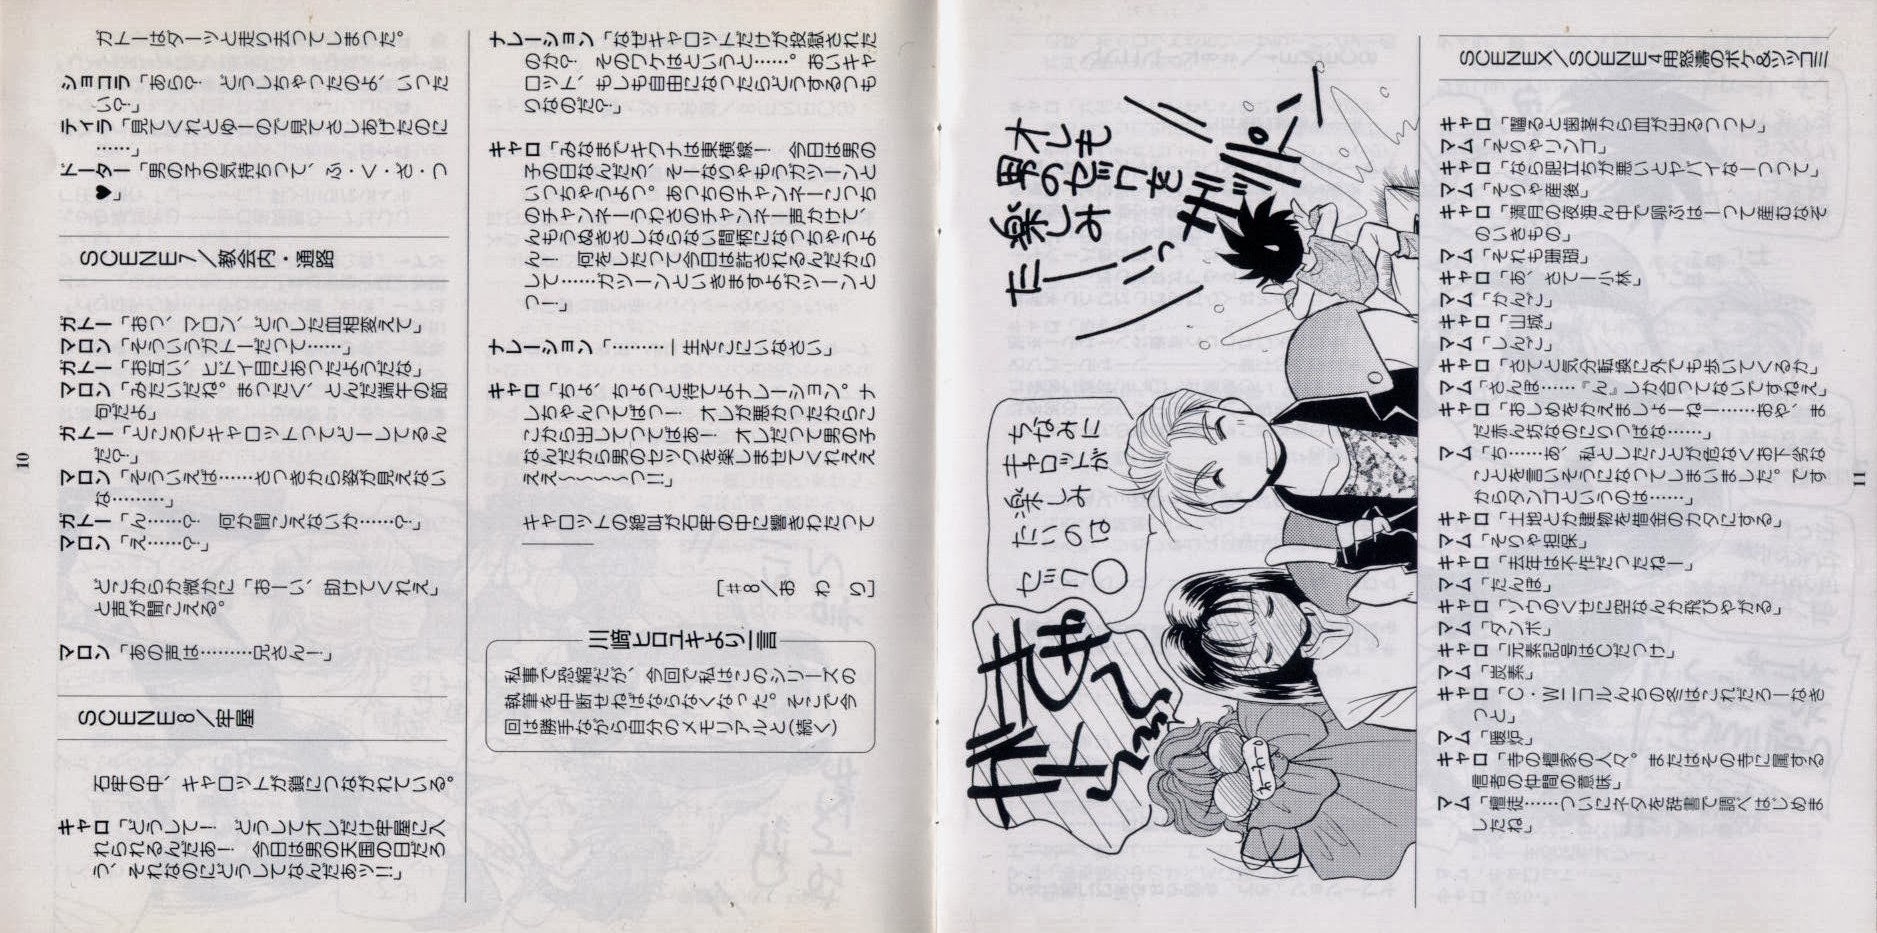 ガトーはダーッと走り去ってしまった。
ショコラ「あら？　どうしちゃったのよ、いった
い？」
ティラ「見てくれとゆーので見てさしあげたのに
……」
ドーター「男の子の気持ちって、ふ・く・ざ・つ
♥」
SCENE7／教会内・通路
ガトー「おっ、マロン、どうした血相変えて」
マロン「そういうガトーだって……」
ガトー「お互い、ヒドイ目にあったようだな」
マロン「みたいだね。まったく、とんだ端午の節
句だよ」
ガトー「ところでキャロットってどーしてるん
だ？」
マロン「そういえば……さっきから姿が見えない
な………」
ガトー「ん……？　何か聞こえないか……？」
マロン「え……？」
どこからか微かに「おーい、助けてくれえ」
と声が聞こえる。
マロン「あの声は………兄さん！」
SCENE8／牢屋
石牢の中、キャロットが鎖につながれている。
キャロ「どうして！　どうしてオレだけ牢屋に入
れられるんだあ！　今日は男の天国の日だろ
う、それなのにどうしてなんだあッ!!」
10
ナレーション「なぜキャロットだけが投獄された
のか？　そのワケはというと……。おいキャ
ロット、もしも自由になったらどうするつも
りなのだ？」
キャロ「みなまでキクナは東横線！　今日は男の
子の日なんだろ、そーなりゃもうガツーンと
いっちゃうよっ。あっちのチャンネーこっち
のチャンネーうわさのチャンネー声かけて、
んもうぬきさしならない間柄になっちゃうよ
ん！　何をしたって今日は許されるんだから
して……ガツーンといきますよガツーンと
っ！」
ナレーション「………一生そこにいなさい」
キャロ「ちょ、ちょっと待てよナレーション。ナ
レちゃんってばっ！　オレが悪かったからこ
こから出してってばあ！　オレだって男の子
なんだから男のセックを楽しませてくれええ
ええ～～～～っ!!」
キャロットの絶叫が石牢の中に響きわたって
――――
［＃8／おわり］
川崎ヒロユキより一言
私事で恐縮だが、今回で私はこのシリーズの
執筆を中断せねばならなくなった。そこで今
回は勝手ながら自分のメモリアルと(続く)
オレも
男のセックを
楽しみ
たーーいっ
ギッパー
ちなみに
キャロットが
楽しみ
たいのは
セック○
SCENEX／SCENE4月怒濤のボケ&ツッコミ
キャロ「齧ると歯茎から血が出るっつって」
マム「そりゃリンゴ」
キャロ「なら肥立ちが悪いとヤバイなーっつて」
マム「そりゃ産後」
キャロ「満月の夜海ん中で卵ぷはーって産むなぞ
のいきもの」
マム「それも珊瑚」
キャロ「あ、さてー小林」
マム「かんこ」
キャロ「山城」
マム「しんご」
キャロ「さてと気分転換に外でも歩いてくるか」
マム「さんぽ……『ん』しか合ってないですねえ」
キャロ「おしめをかえましょーねー……おや、ま
だ赤ん坊なのにりっぱな……」
マム「ち……あ、私としたことが危なくお下劣な
ことを言いそうになってしまいました。です
からダンゴというのは……」
キャロ「土地とか建物を借金のカタにする」
マム「そりゃ担保」
キャロ「去年は不作だったねー」
マム「たんぼ」
キャロ「ゾウのくせに空なんか飛びやがる」
マム「ダンボ」
キャロ「元素記号はCだっけ」
マム「炭素」
キャロ「C・W＝ニコルんちの冬はこれだろーなき
っと」
マム「暖炉」
キャロ「寺の檀家の人々。またはその寺に属する
信者の仲間の意味」
マム「檀徒……ついにネタを辞書で調べはじめま
したね」
11